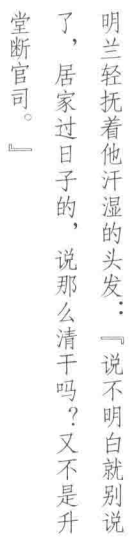 明兰轻抚着他汗湿的头发：『说不明白就别说
了，居家过日子的，说那么清干吗？又不是升
堂断官司。』